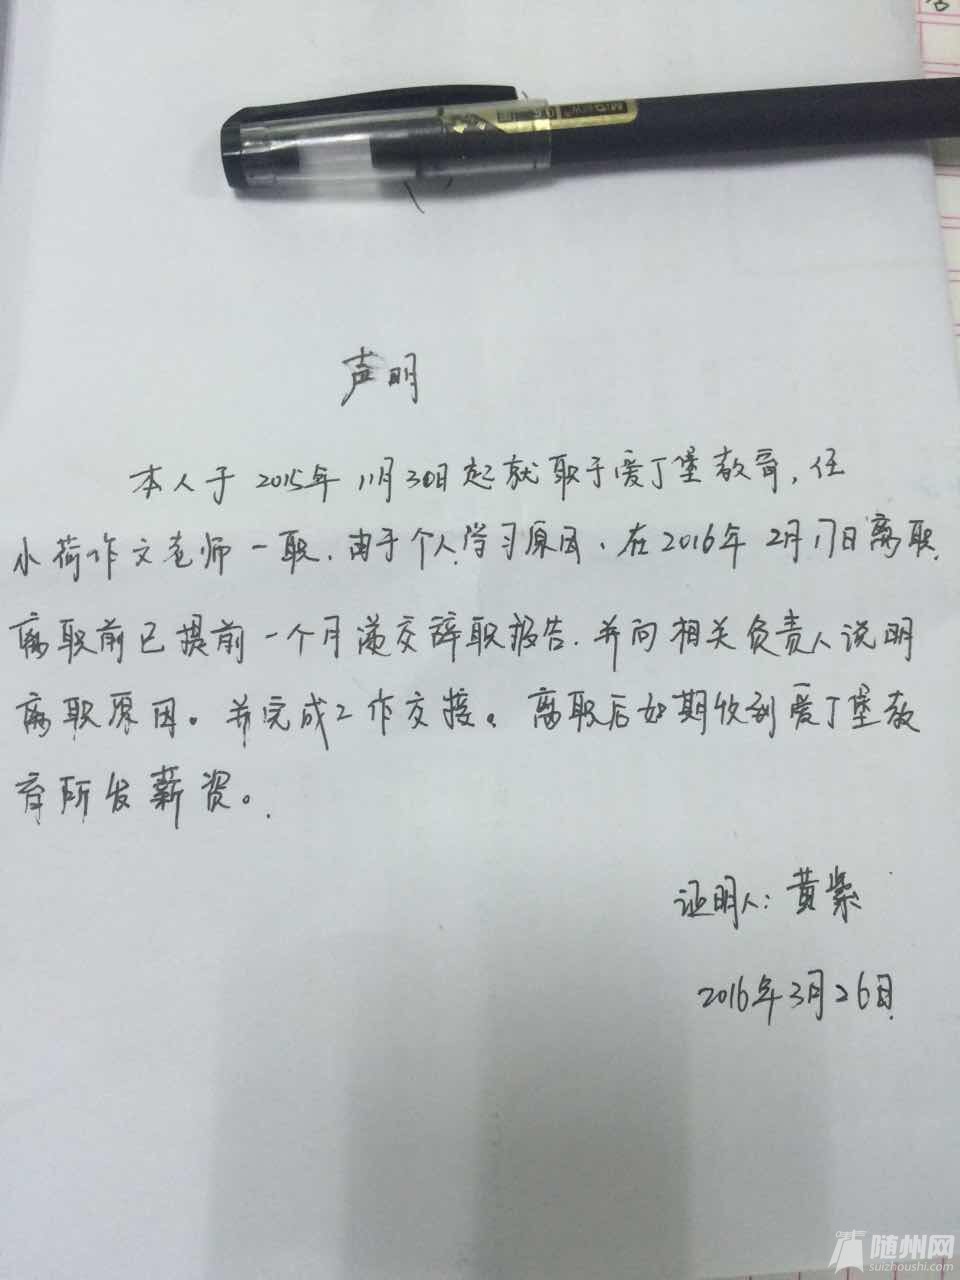 声明
本人于2015年11月30日起就职于爱丁堡教育,任
小荷作文老师一职.由于个人学习原因、在2016年2月17日离职.
离职前已提前一个月递交辞职报告.并向相关负责人说明
离职原因。并完成工作交接。离职后如期收到爱丁堡教
育所发薪资。
证明人:黄紫
2016年3月26日
随州网
suizhoushi.com